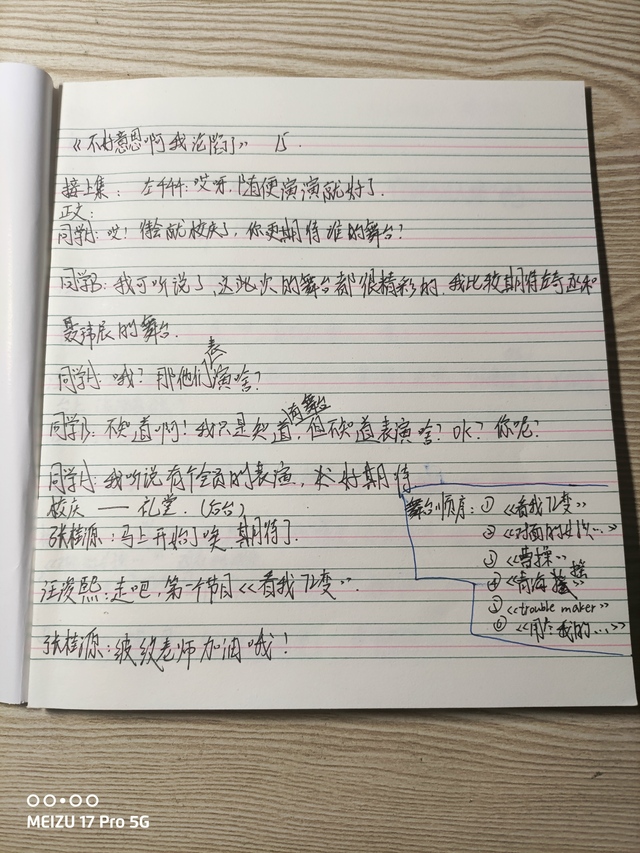 《不好意思啊我沦陷了》 15.
接上集: 左千千: 哎呀, 随便演演就好了.
正文:
同学A: 哎! 待会就校庆了, 你更期待谁的舞台?
同学B: 我可听说了, 这次的舞台都很精彩的. 我比较期待左奇函和
聂玮辰的舞台.
同学A: 哦? 那他们表演啥?
同学B: 不知道啊! 我只是知道有舞台, 但不知道表演啥? OK? 你呢?
同学A: 我听说有个全员的表演, 好期待
校庆 —— 礼堂. (后台)
张桂源: 马上开始了唉, 期待了.
汪浚熙: 走吧, 第一个节目《看我72变》.
张桂源: 波纹老师加油哦!
舞台顺序: ① 《看我72变》
② 《对面的女孩...》
③ 《曹操》
④ 《青海摇》
⑤ 《trouble maker》
⑥ 《用我的...》
MEIZU 17 Pro 5G